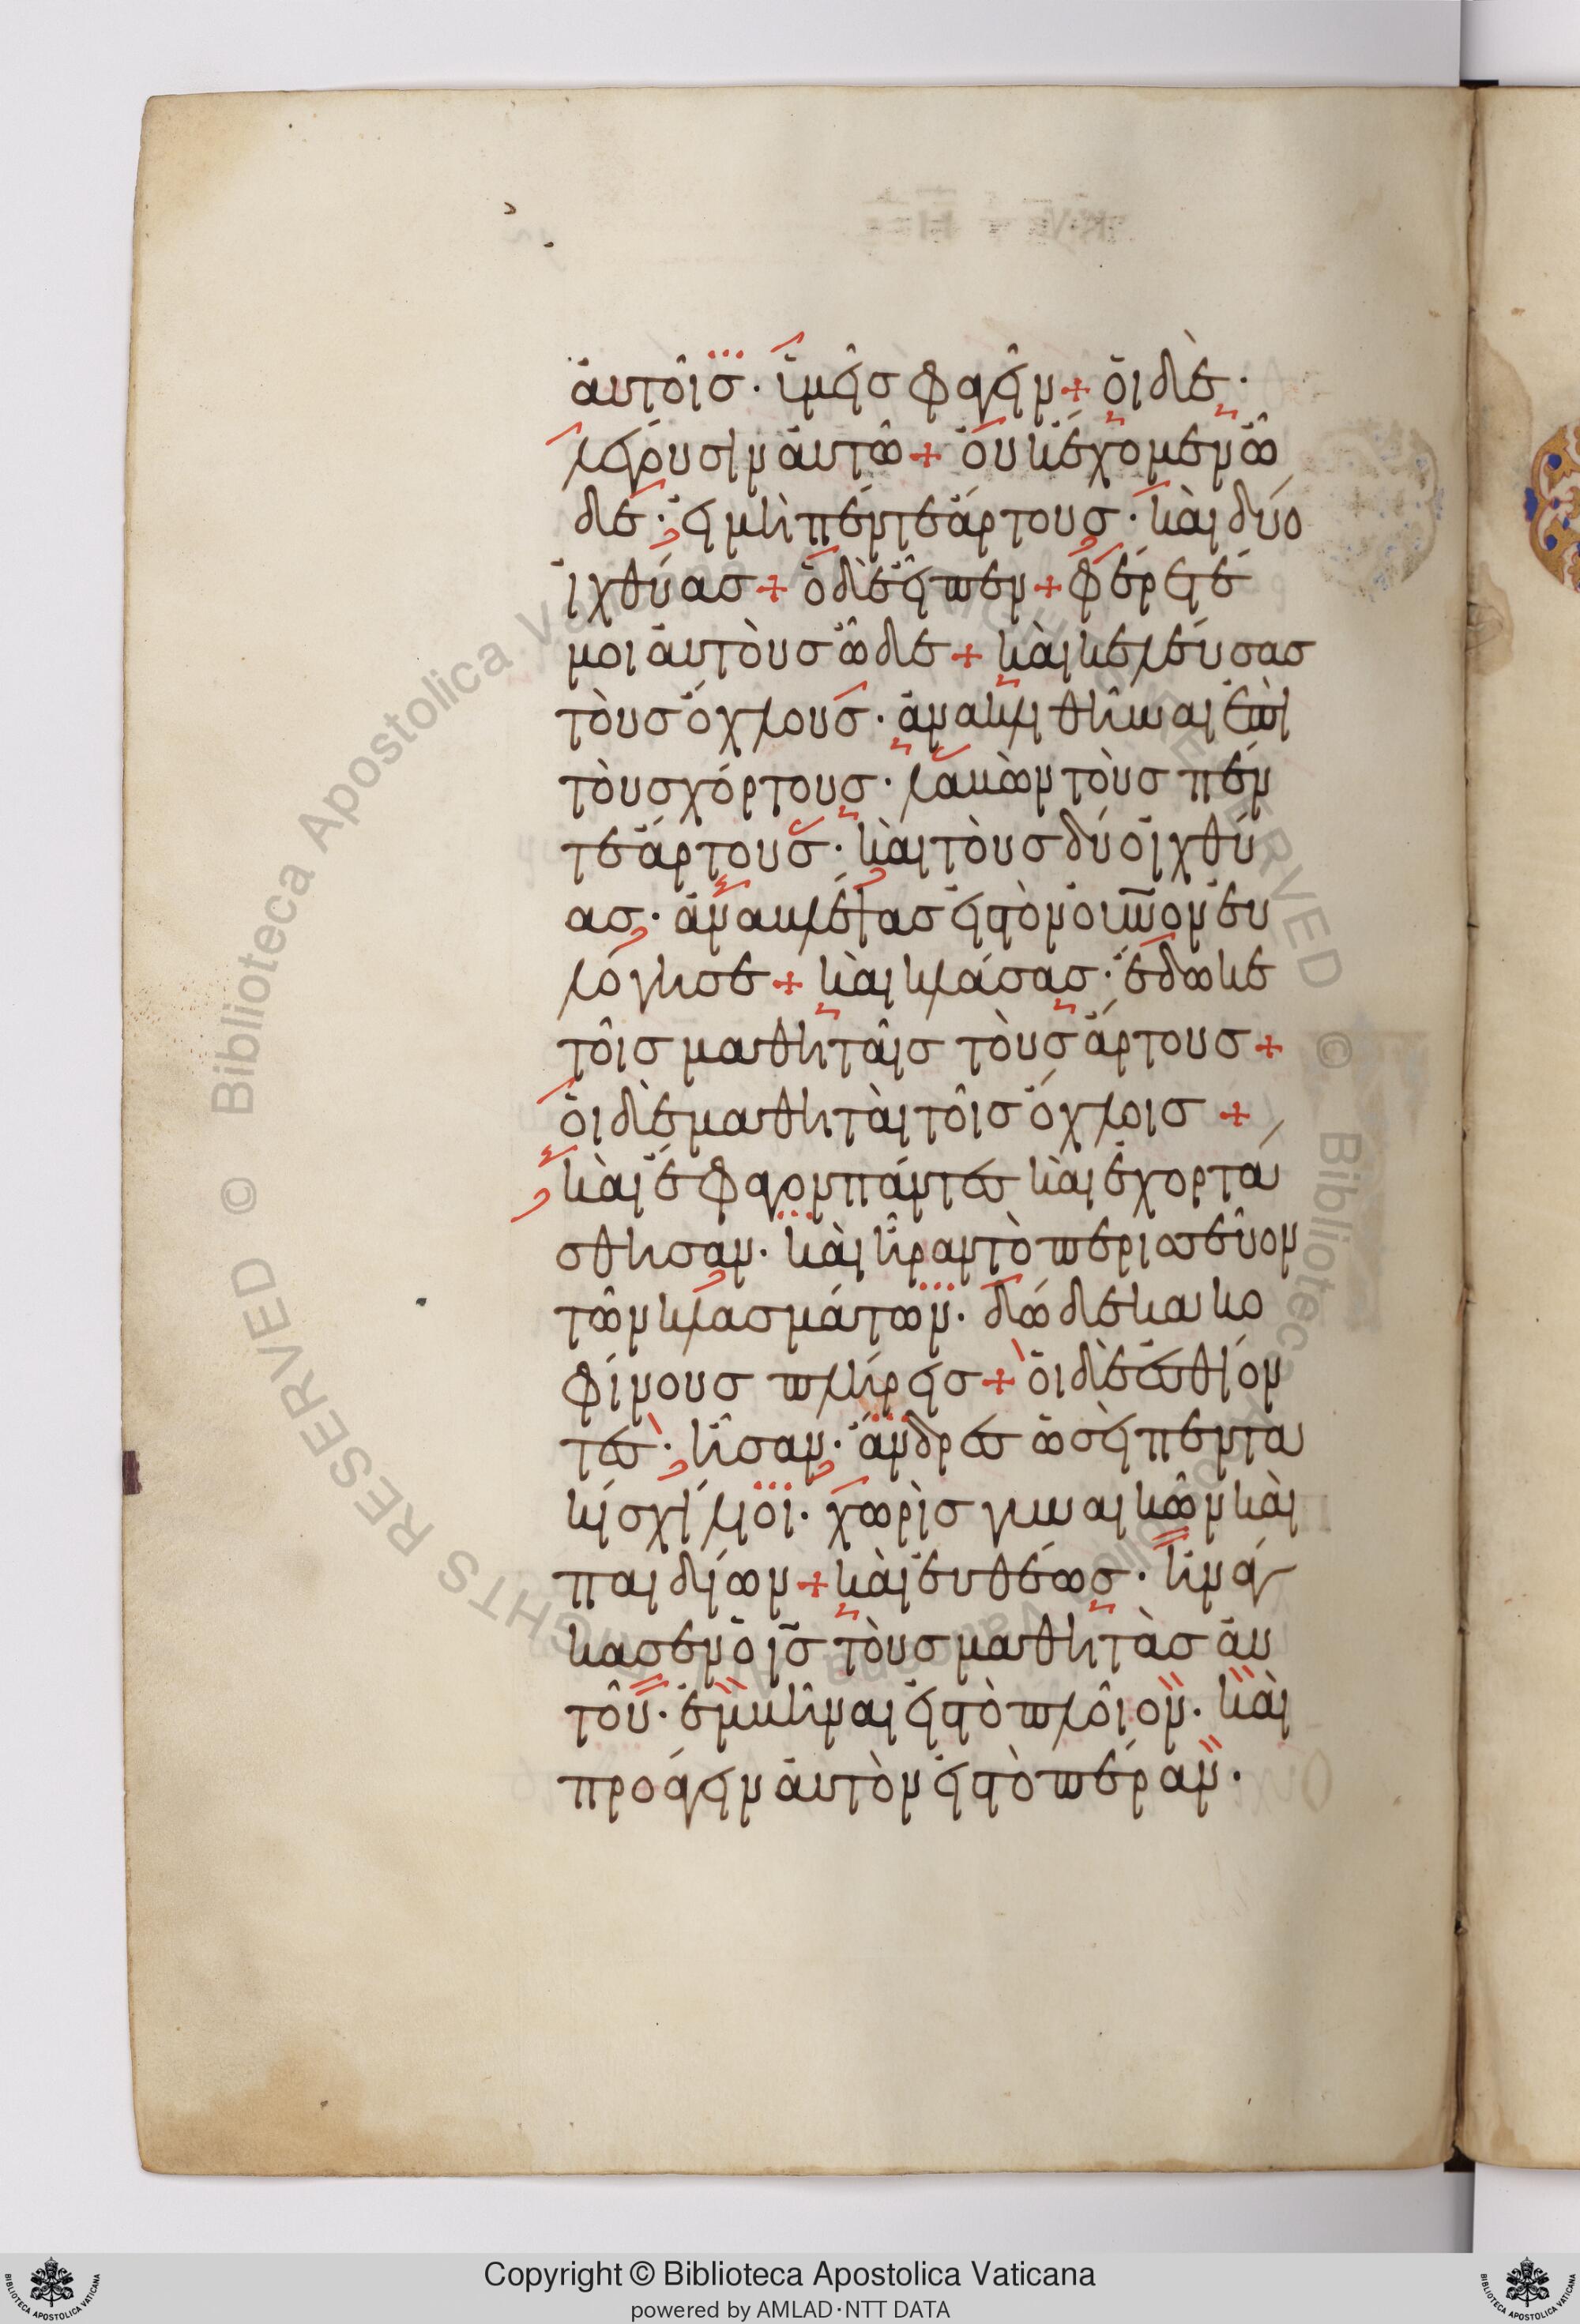 αὐτοῖσ· ὑμεῖσ φαγεῖν + οἱ δὲ·
λέγουσιν αὐτῶ + οὐκ ἔχομεν ὧ
δε· εἰ μὴ πέντε ἄρτουσ· καὶ δύο
ἰχθύασ + ὁ δὲ εἶπεν + φέρετέ
μοι αὐτοὺσ ὧδε + καὶ κελεύσασ
τοὺσ ὄχλουσ· ἀνακλιθῆναι ἐπὶ
τοὺσ χόρτουσ· λαβὼν τοὺσ πέν
τε ἄρτουσ· καὶ τοὺσ δύο ἰχθύ
ασ· ἀναβλέψασ εἰσ τὸν οὐρανὸν εὐ
λόγησε + καὶ κλάσασ· ἔδωκε
τοῖσ μαθηταῖσ τοὺσ ἄρτουσ +
οἱ δὲ μαθηταὶ τοῖσ ὄχλοισ +
καὶ ἔφαγον πάντεσ καὶ ἐχορτά
σθησαν· καὶ ἦραν τὸ περισσεῦον
τῶν κλασμάτων· δώδεκα κο
φίνουσ πλήρεισ + οἱ δὲ ἐσθίον
τεσ· ἦσαν· ἄνδρεσ ὡσεὶ πεντα
κισχίλιοι· χωρὶσ γυναικῶν καὶ
παιδίων + καὶ εὐθέωσ· ἠνάγ
κασεν ὁ ισ τοὺσ μαθητὰσ αὐ
τοῦ· ἐμβῆναι εἰσ τὸ πλοῖον· καὶ
προάγειν αὐτὸν εἰσ τὸ πέραν·
Copyright © Biblioteca Apostolica Vaticana
powered by AMLAD·NTT DATA